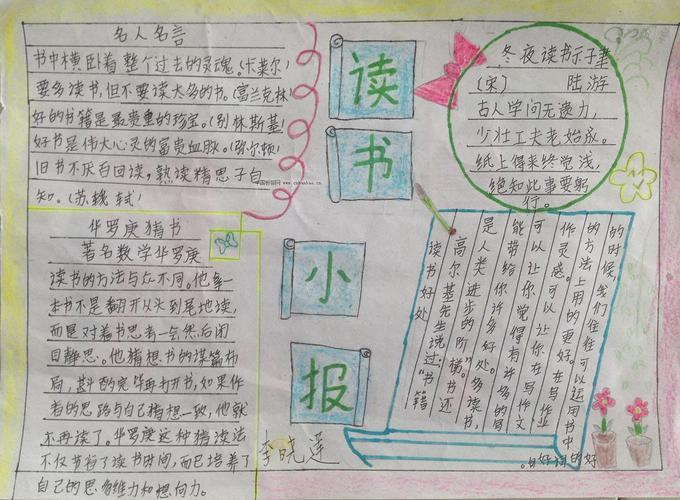 名人名言
书中横卧着整个过去的灵魂。(卡莱尔)
要多读书,但不要读太多的书。(富兰克林)
好的书籍是最贵重的珍宝。(别林斯基)
好书是伟大心灵的富贵血脉。(弥尔顿)
旧书不厌百回读,熟读精思子自
知。(苏轼)
读
书
小
报
冬夜读书示子聿
(宋) 陆游
古人学问无遗力,
少壮工夫老始成。
纸上得来终觉浅,
绝知此事要躬
行。
华罗庚猜书
著名数学华罗庚
读书的方法与众不同。他拿一
本书不是翻开从头到尾地读,
而是对着书思考一会然后闭
目静思。他猜想书的谋篇布
局,斟酌完毕再打开书,如果作
者的思路与自己猜想一致,他就
不再读了。华罗庚这种猜读法
不仅节省了读书时间,而已培养了
自己的思多维力和想向力。
李晓莲
读书好处
高尔基先生说过:“书籍
是人类进步的阶梯。”书还
能带给你许多好处。多读书,
可以让你觉得有许多的写
作灵感。可以让你在写作文
的方法上用的更好。在写作业
的时候,我们往往可以运用书中
的好词好句。